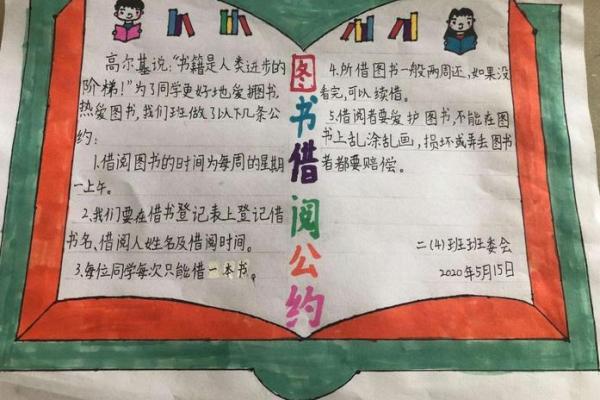 图书借阅公约
高尔基说:“书籍是人类进步的
阶梯!”为了同学更好地,爱拥图书,
热爱图书,我们班做了以下几条公
约:
1.借阅图书的时间为每周的星期
一上午。
2.我们要在借书登记表上登记借
书名、借阅人姓名及借阅时间。
3.每位同学每次只能借一本书。
4.所借图书一般两周还,如果没
看完,可以续借。
5.借阅者要爱护图书,不能在图
书上乱涂乱画,损坏或弄丢图书
者都要赔偿。
二(4)班班委会
2020年5月15日